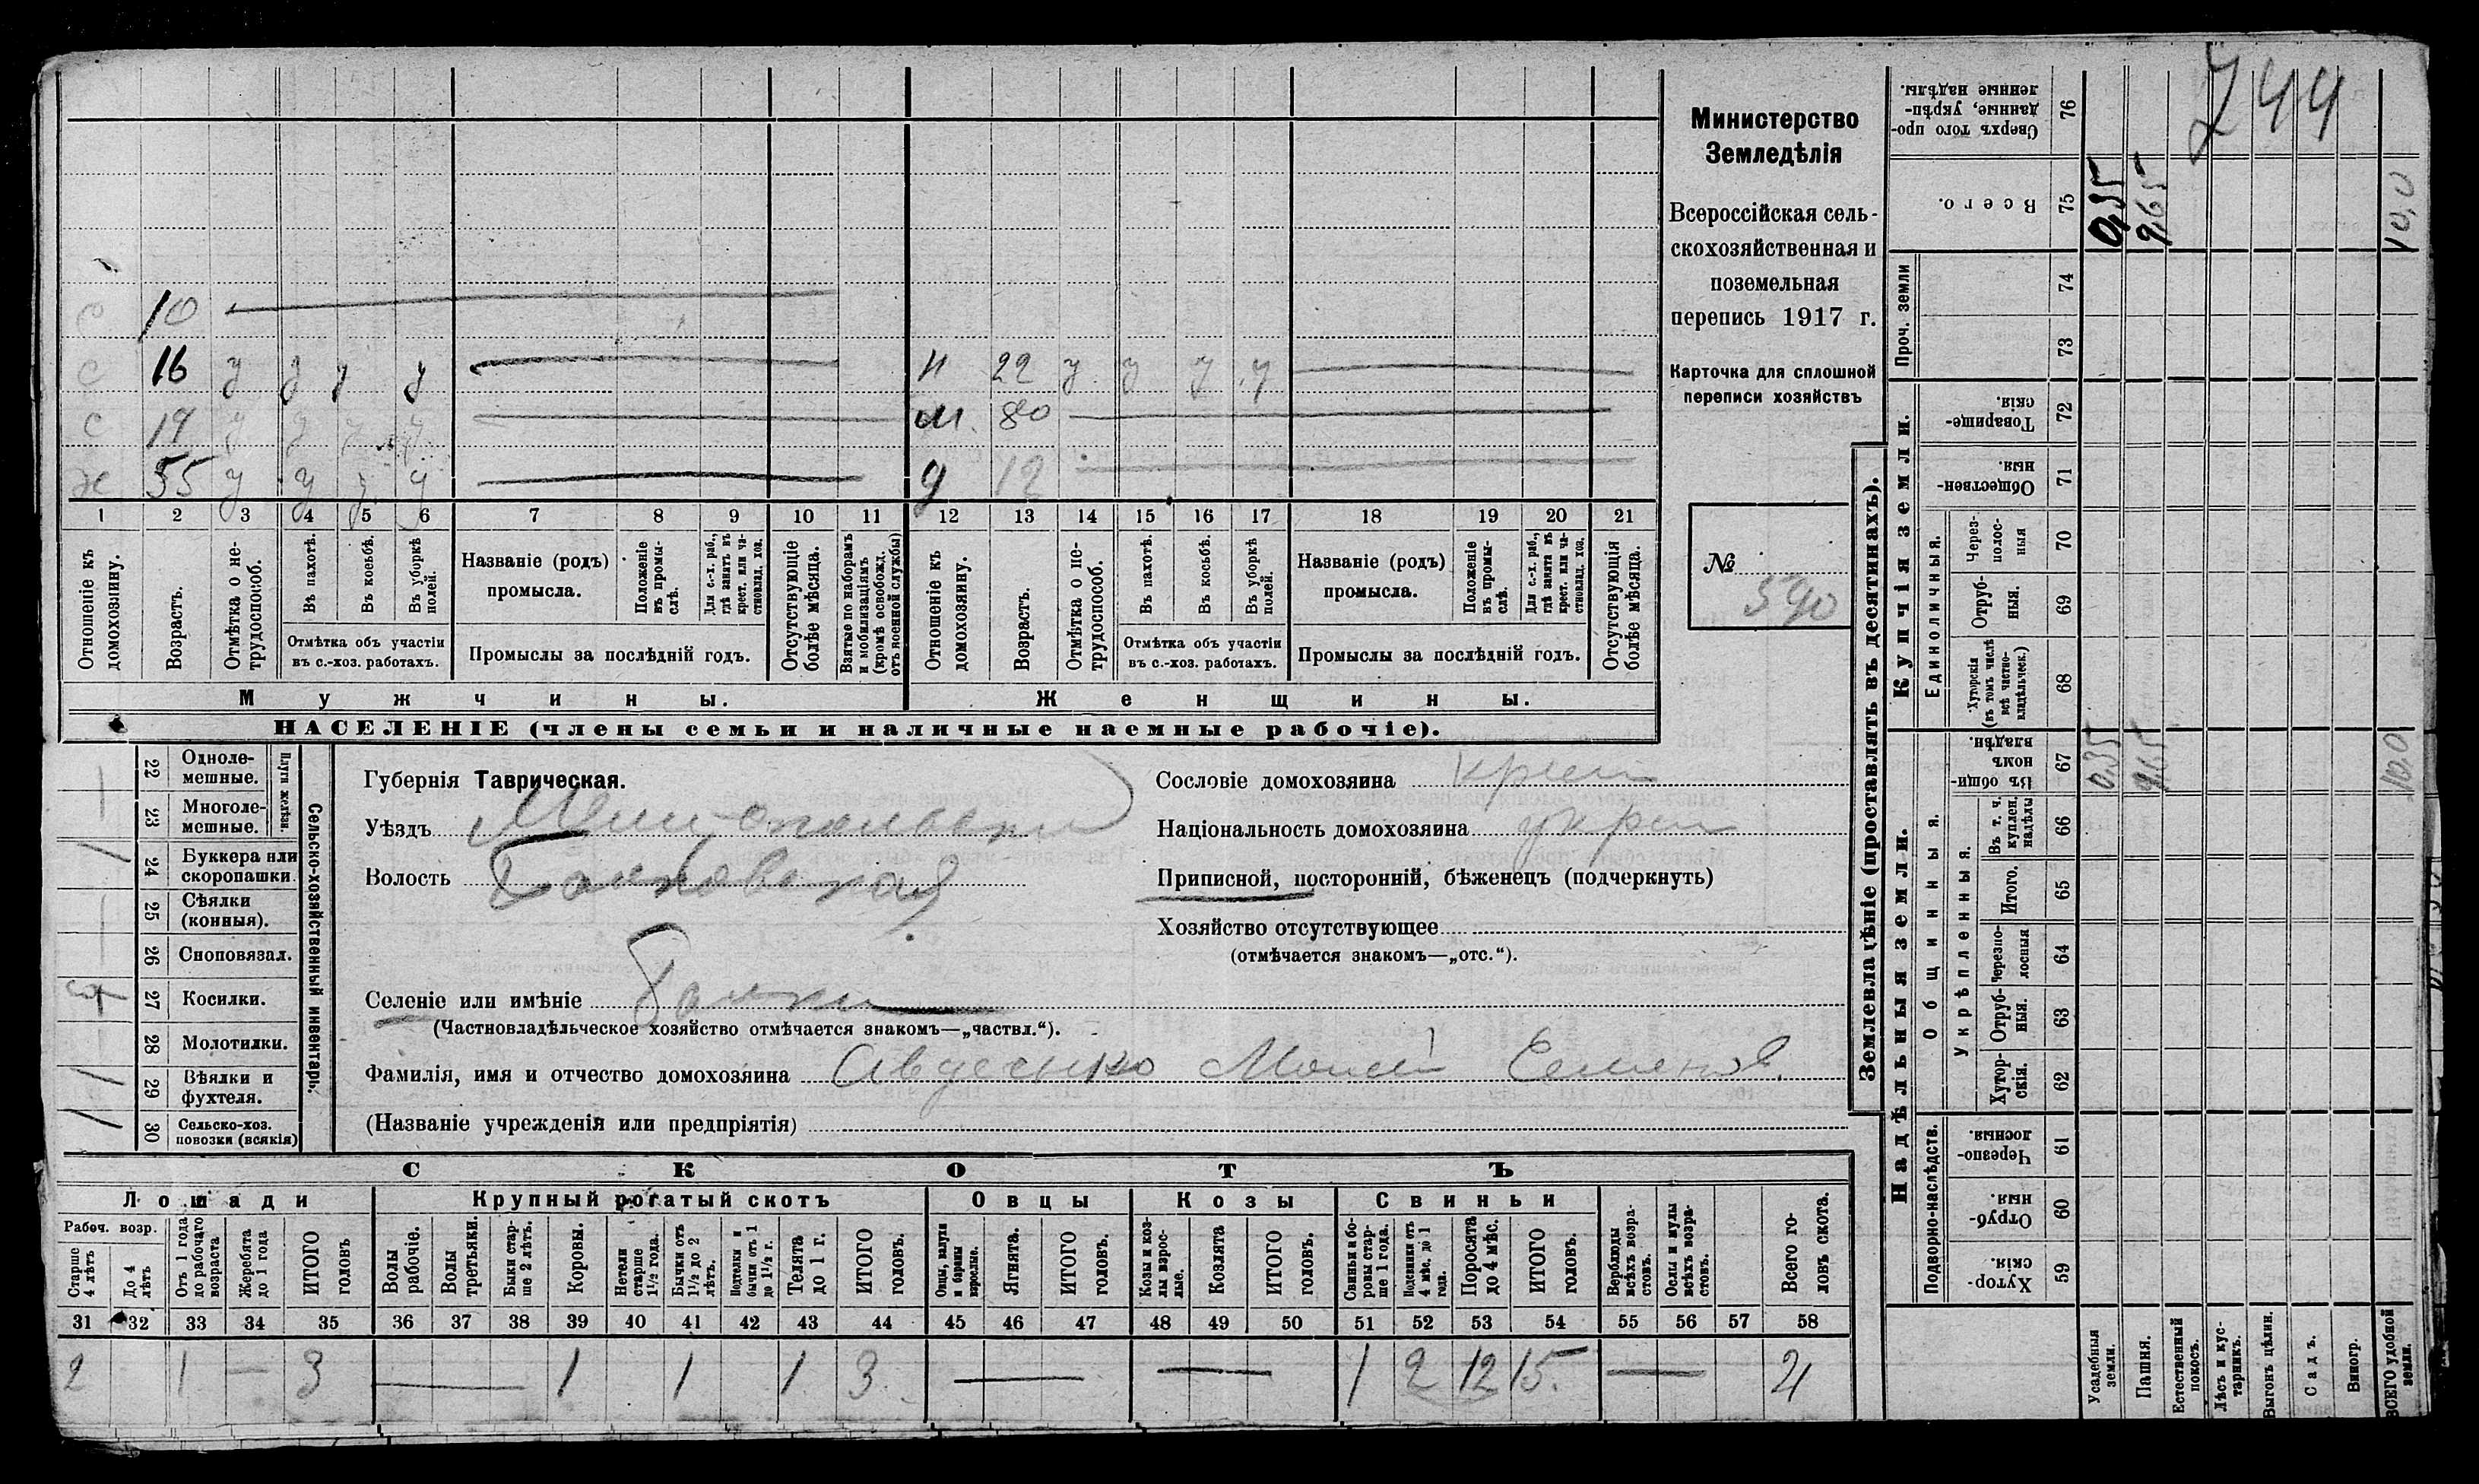 744
Министерство
Земледѣлія
Всероссійская сель-
скохозяйственная и
поземельная
перепись 1917 г.
Карточка для сплошной
переписи хозяйствъ
№ 590
с 10
с 16 у у у у
н 22 у у у у
с 19 у у у у
м. 80
х 55 у у у у
д 12
1 2 3 4 5 6 7 8 9 10 11 12 13 14 15 16 17 18 19 20 21
Отношеніе къ домохозяину.
Возрастъ.
Отмѣтка о не-трудоспособ.
Въ пахотѣ.
Въ косьбѣ.
Въ уборкѣ полей.
Отмѣтка объ участіи
въ с.-хоз. работахъ.
Названіе (родъ)
промысла.
Положеніе въ промы-слѣ.
Для с.-х. раб., гдѣ занятъ въ крест. или ча-стновлад. хоз.
Промыслы за послѣдній годъ.
Отсутствующіе болѣе мѣсяца.
Взятые по наборамъ и мобилизаціямъ (кромѣ освобожд. отъ военной службы)
Отношеніе къ домохозяину.
Возрастъ.
Отмѣтка о не-трудоспособ.
Въ пахотѣ.
Въ косьбѣ.
Въ уборкѣ полей.
Отмѣтка объ участіи
въ с.-хоз. работахъ.
Названіе (родъ)
промысла.
Положеніе въ промы-слѣ.
Для с.-х. раб., гдѣ занята въ крест. или ча-стновлад. хоз.
Промыслы за послѣдній годъ.
Отсутствующія болѣе мѣсяца.
Мужчины.
Женщины.
НАСЕЛЕНІЕ (члены семьи и наличные наемные рабочіе).
Сельско-хозяйственный инвентарь.
Плуги желѣзн.
22 Одноле-мешные.
23 Многоле-мешные.
24 Буккера или скоропашки
25 Сѣялки (конныя).
26 Сноповязал.
27 Косилки.
28 Молотилки.
29 Вѣялки и фухтеля.
30 Сельско-хоз. повозки (всякія)
Губернія Таврическая.
Уѣздъ Мелитопольскій
Волость Балковская
Селеніе или имѣніе Балки
(Частновладѣльческое хозяйство отмѣчается знакомъ—„частвл.“).
Фамилія, имя и отчество домохозяина Авдеенко Моисей Семенов.
(Названіе учрежденія или предпріятія)
Сословіе домохозяина крест
Національность домохозяина укра
Приписной, посторонній, бѣженецъ (подчеркнуть)
Хозяйство отсутствующее
(отмѣчается знакомъ—„отс.“).
СКОТЪ
Лошади Крупный рогатый скотъ Овцы Козы Свиньи
Рабоч. возр.
Старше 4 лѣтъ
До 4 лѣтъ
Отъ 1 года до рабочаго возраста
Жеребята до 1 года
ИТОГО головъ
Волы рабочіе.
Волы третьяки.
Быки стар-ше 2 лѣтъ.
Коровы.
Нетели старше 1½ года.
Бычки отъ 1½ до 2 лѣтъ.
Подтелки и бычки отъ 1 до 1½ г.
Телята до 1 г.
ИТОГО головъ.
Овцы, валухи и бараны взрослые.
Ягнята.
ИТОГО головъ.
Козы и коз-лы взрос-лые.
Козлята
ИТОГО головъ.
Свиньи и бо-ровы стар-ше 1 года.
Подсвинки отъ 4 мѣс. до 1 года.
Поросята до 4 мѣс.
ИТОГО головъ.
Верблюды всѣхъ возра-стовъ.
Ослы и мулы всѣхъ возра-стовъ.
Всего го-ловъ скота.
31 32 33 34 35 36 37 38 39 40 41 42 43 44 45 46 47 48 49 50 51 52 53 54 55 56 57 58
2 1 — 3 — 1 1 1 3 — — 1 2 12 15. — 21
Землевладѣніе (проставлять въ десятинахъ).
Надѣльныя земли.
Подворно-наслѣдств.
59 Хутор-скія.
60 Отруб-ныя.
61 Черезпо-лосныя.
Общинныя.
Укрѣпленныя.
62 Хутор-скія.
63 Отруб-ныя.
64 Черезпо-лосныя
65 Итого.
66 Въ т. ч. куплен. надѣлы
67 Въ общин-номъ владѣн.
Купчія земли.
Единоличныя.
68 Хуторскія (въ томъ числѣ всѣ частно-владѣльческ.)
69 Отруб-ныя.
70 Через-полос-ныя
71 Обществен-ныя.
72 Товарище-скія.
Проч. земли
73
74
75 Всего.
76 Сверхъ того про-данные, укрѣп-ленные надѣлы.
Усадебныя земли. 0,35 0,35
Пашня. 9,65 9,65
Естественный покосъ.
Лѣсъ и кус-тарникъ.
Выгонъ цѣлин.
Садъ.
Виногр.
ВСЕГО удобной земли. 10,0 10,0